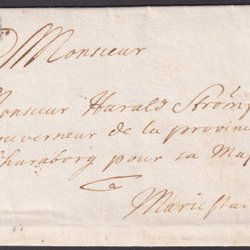 Monsieur
Monsieur Harald Strömf
Gouverneur de la provin
Skaraborg pour sa Maj
Mariesta